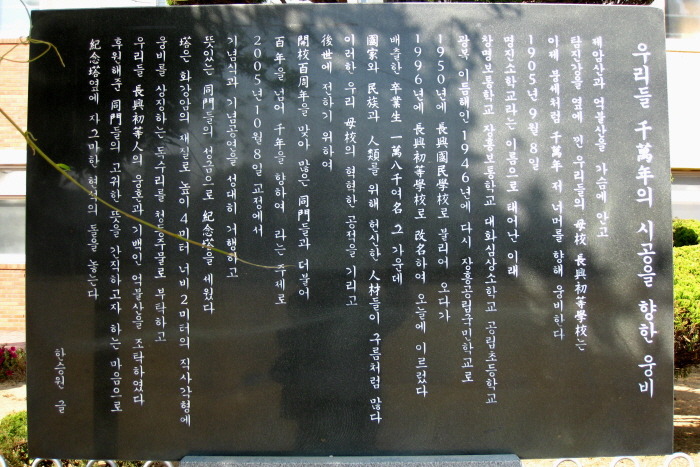 우리들 千萬年의 시공을 향한 웅비
제암산과 억불산을 가슴에 안고
탐진강을 옆에 낀 우리들의 母校 長興初等學校는
이제 봉세처럼 千萬年 저 너머를 향해 웅비한다
1905년 9월 8일
명진소학교라는 이름으로 태어난 이래
창명보통학교 장흥보통학교 대화심상소학교 공립초등학교
광복 이듬해인 1946년에 다시 장흥공립국민학교로
1950년에 長興國民學校로 불리어 오다가
1996년에 長興初等學校로 改名하여 오늘에 이르렀다
배출한 卒業生 一萬八千여名 그 가운데
國家와 民族과 人類를 위해 헌신한 人材들이 구름처럼 많다
이러한 우리 母校의 혁혁한 공적을 기리고
後世에 전하기 위하여
開校百周年을 맞아 많은 同門들과 더불어
百年을 넘어 千年을 향하여 라는 주제로
2005년 10월 8일 교정에서
기념식과 기념공연을 성대히 거행하고
뜻있는 同門들의 성금으로 紀念塔을 세웠다
塔은 화강암의 재질로 높이 4미터 너비 2미터의 직사각형에
웅비를 상징하는 독수리를 청동주물로 부탁하고
우리들 長興初等人의 웅혼과 기백인 억불산을 조탁하였다
후원해준 同門들의 고귀한 뜻을 간직하고자 하는 마음으로
紀念塔옆에 자그마한 헌석의 돌을 놓는다
한승원 글